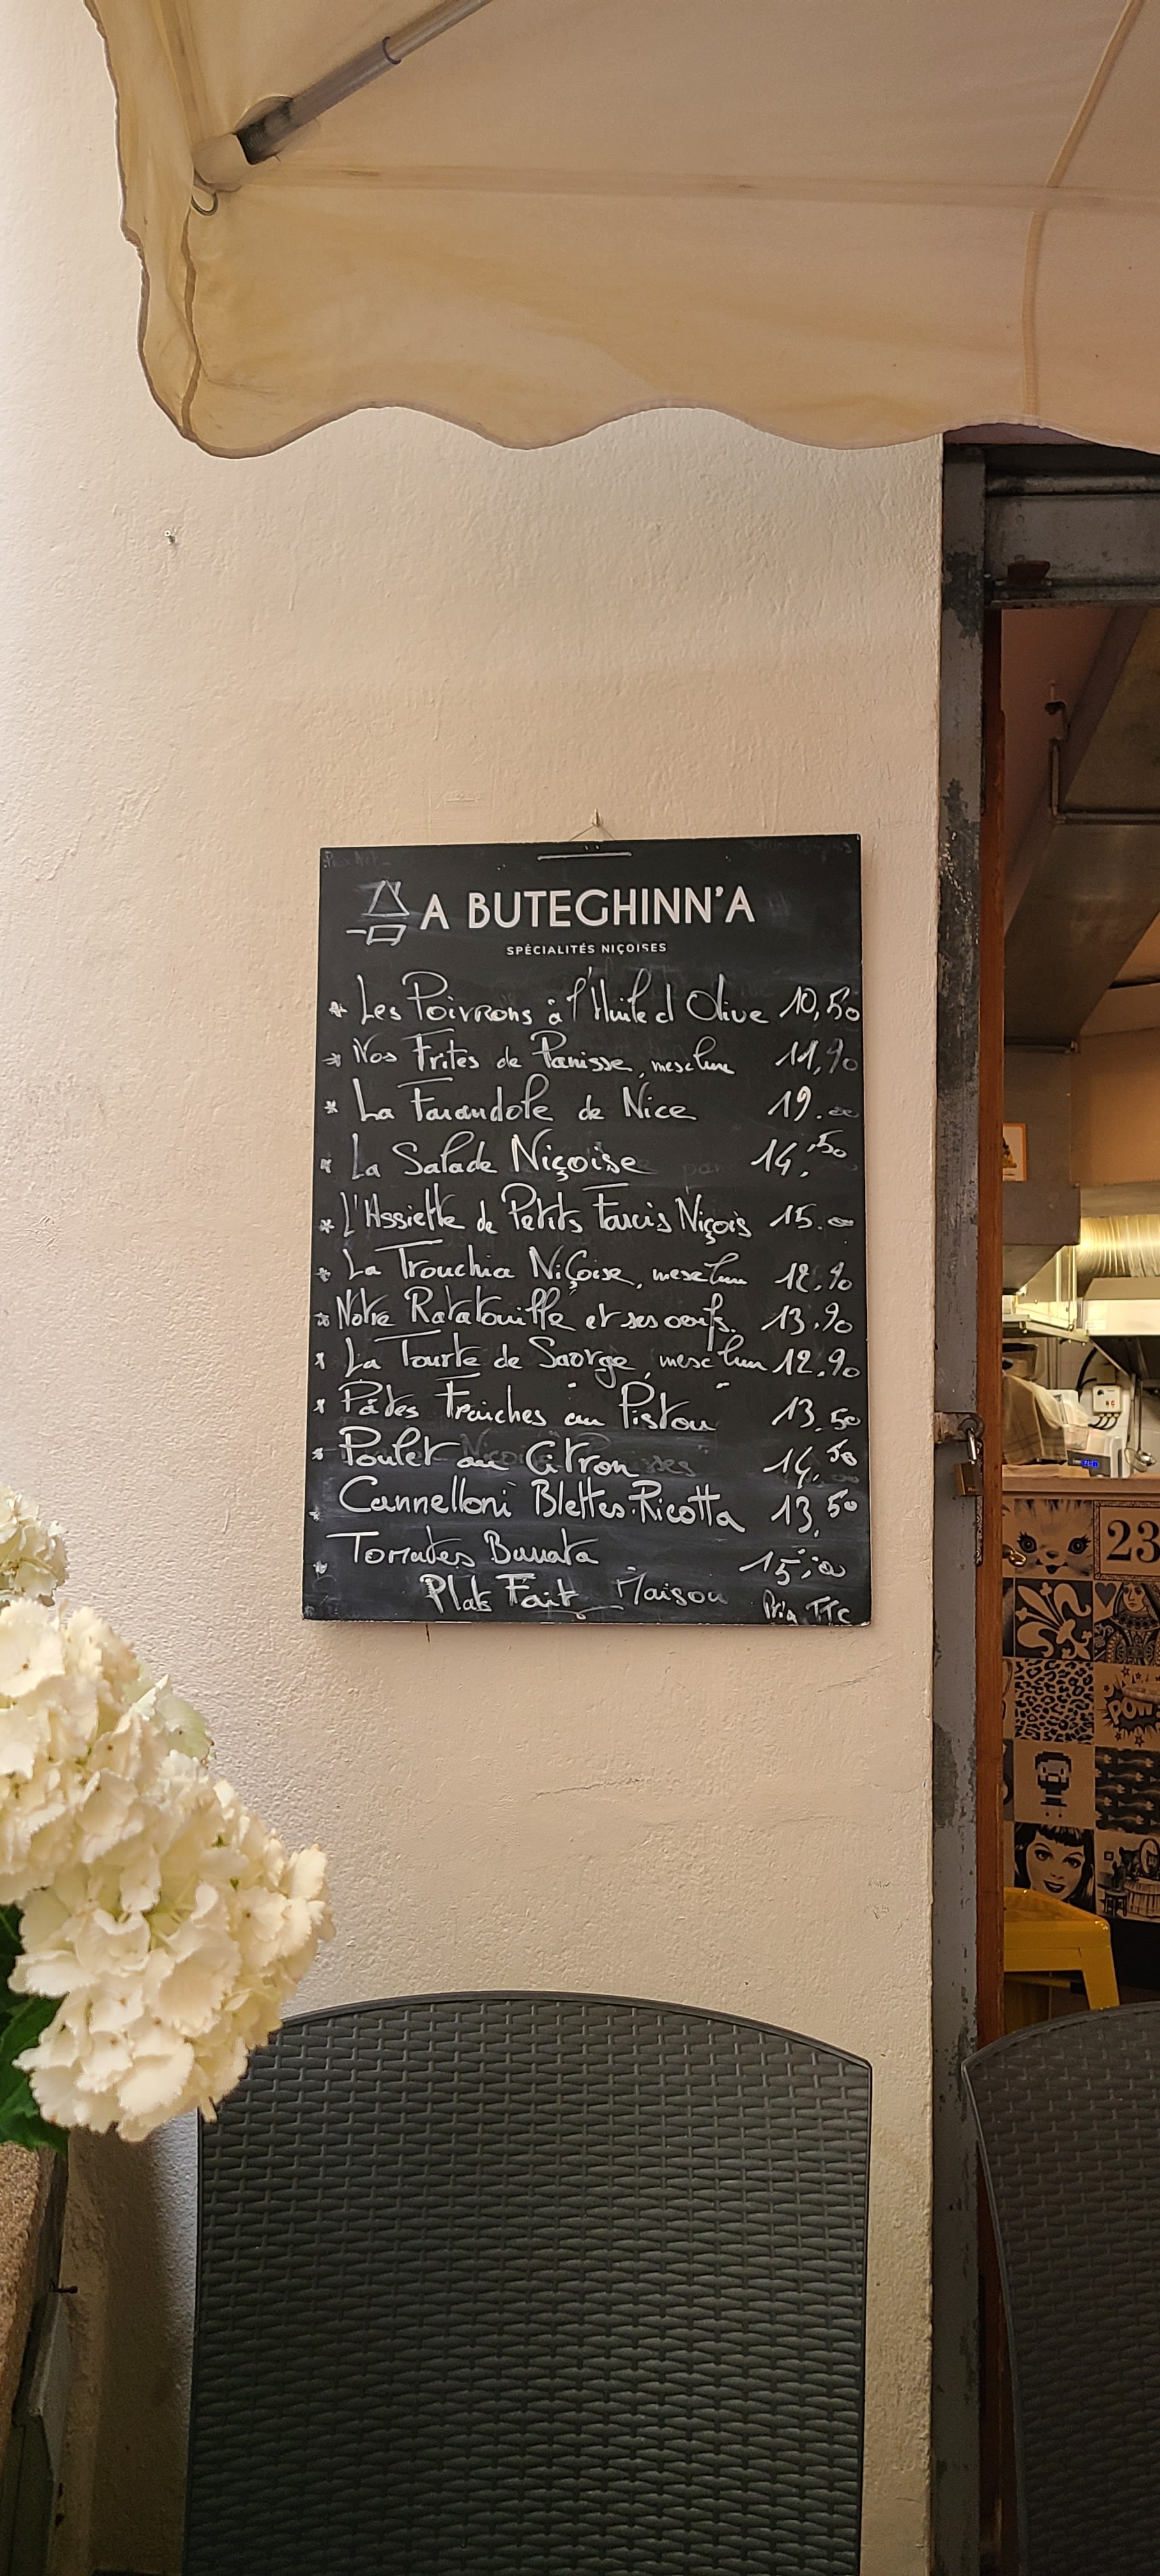 A BUTEGHINN'A
SPÉCIALITÉS NIÇOISES
* Les Poivrons à l'Huile d Olive 10,50
* Nos Frites de Panisse, mesclun 11,90
* La Farandole de Nice 19.00
* La Salade Niçoise 14,50
* L'Assiette de Petits Farcis Niçois 15.00
* La Trouchia Niçoise, mesclun 12.90
* Notre Ratatouille et ses oeufs. 13.90
* La Tourte de Saorge, mesclun 12.90
* Pâtes Fraiches au Pistou 13.50
* Poulet au Citron 14.50
* Cannelloni Blettes.Ricotta 13,50
* Tomates Burrata 15,00
Plats Fait Maison Prix TTC
23
POW